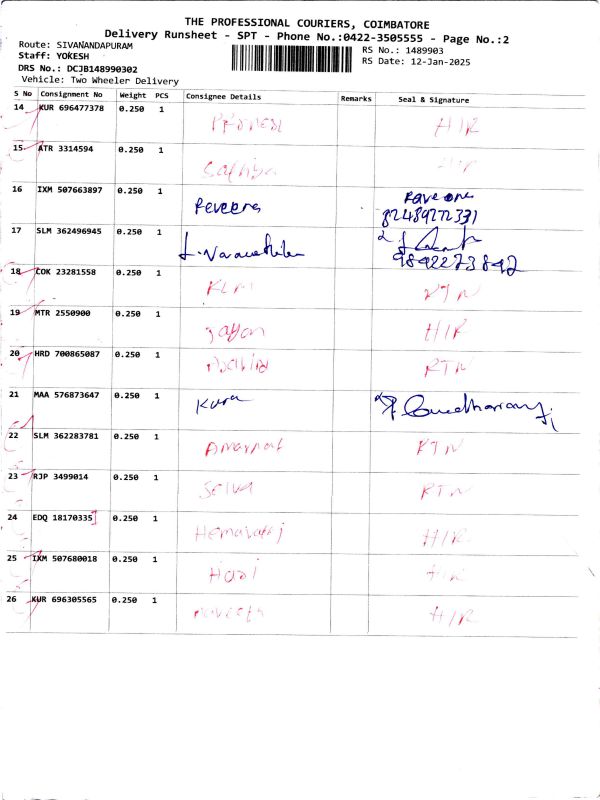 THE PROFESSIONAL COURIERS, COIMBATORE
Delivery Runsheet - SPT - Phone No.:0422-3505555 - Page No.:2
Route: SIVANANDAPURAM RS No.: 1489903
Staff: YOKESH RS Date: 12-Jan-2025
DRS No.: DCJB148990302
Vehicle: Two Wheeler Delivery
S No Consignment No Weight PCS Consignee Details Remarks Seal & Signature
14 KUR 696477378 0.250 1 H/R
15 ATR 3314594 0.250 1 Sathiya
16 IXM 507663897 0.250 1 Peveena
17 SLM 362496945 0.250 1
9892273892
18 COK 23281558 0.250 1 KLM RTN
19 MTR 2550900 0.250 1 H/R
20 HRD 700865087 0.250 1 RTN
21 MAA 576873647 0.250 1
22 SLM 362283781 0.250 1 Amarnat RTN
23 RJP 3499014 0.250 1 Selva RTN
24 EDQ 18170335 0.250 1 H/R
25 IXM 507680018 0.250 1 Hari H/R
26 KUR 696305565 0.250 1 H/R